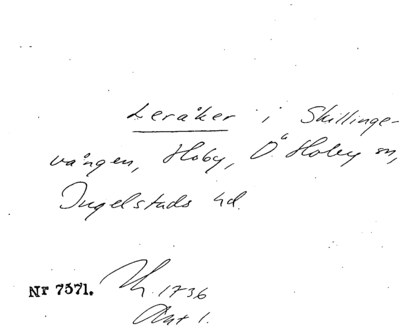 Leråker i Skillinge-
vången, Hoby, Ö. Hoby sn,
Ingelstads hd.
Nr 7571. 1736
Akt 1.